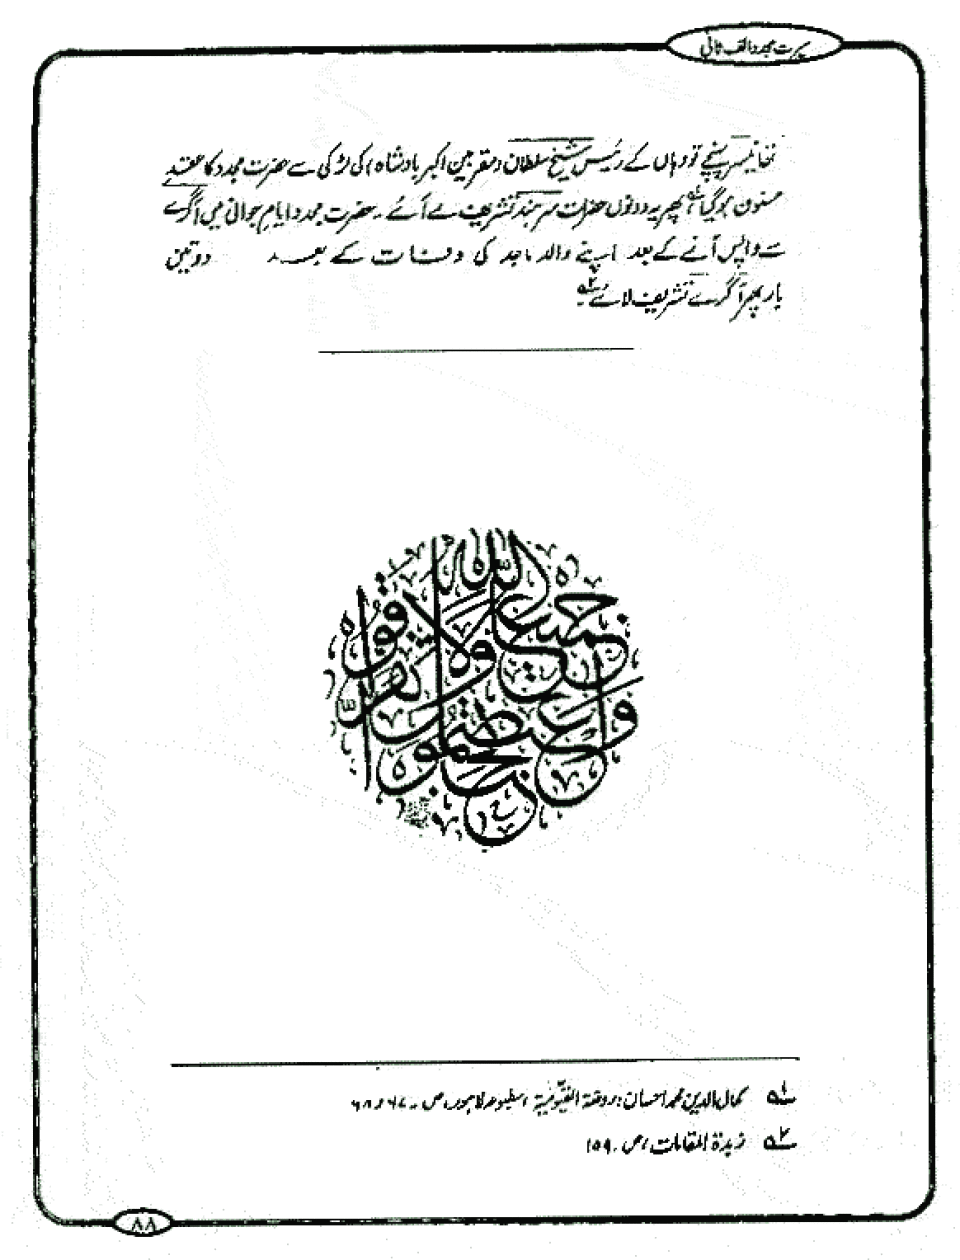 سیرت مجدد الف ثانی
تھانیسر پہنچے تو وہاں کے رئیس شیخ سلطان (مقربین اکبر بادشاہ) کی لڑکی سے حضرت مجدد کا عقدِ
مسنون ہوگیا ۱؎ پھر یہ دونوں حضرات سرہند تشریف لے آئے ۔ حضرت مجدد ایامِ جوانی میں آگرے
سے واپس آنے کے بعد اپنے والد ماجد کی وفات کے بعد دو تین
بار پھر آگرے تشریف لائے ۲؎۔
واعتصموا بحبل الله جميعا ولا تفرقوا
۱؎ کمال الدین محمد احسان : روضۃ القیومیۃ ، مطبوعہ لاہور، ص ۔ ۶۷، ۶۸
۲؎ زبدۃ المقامات ، ص ۔ ۱۵۹
۸۸